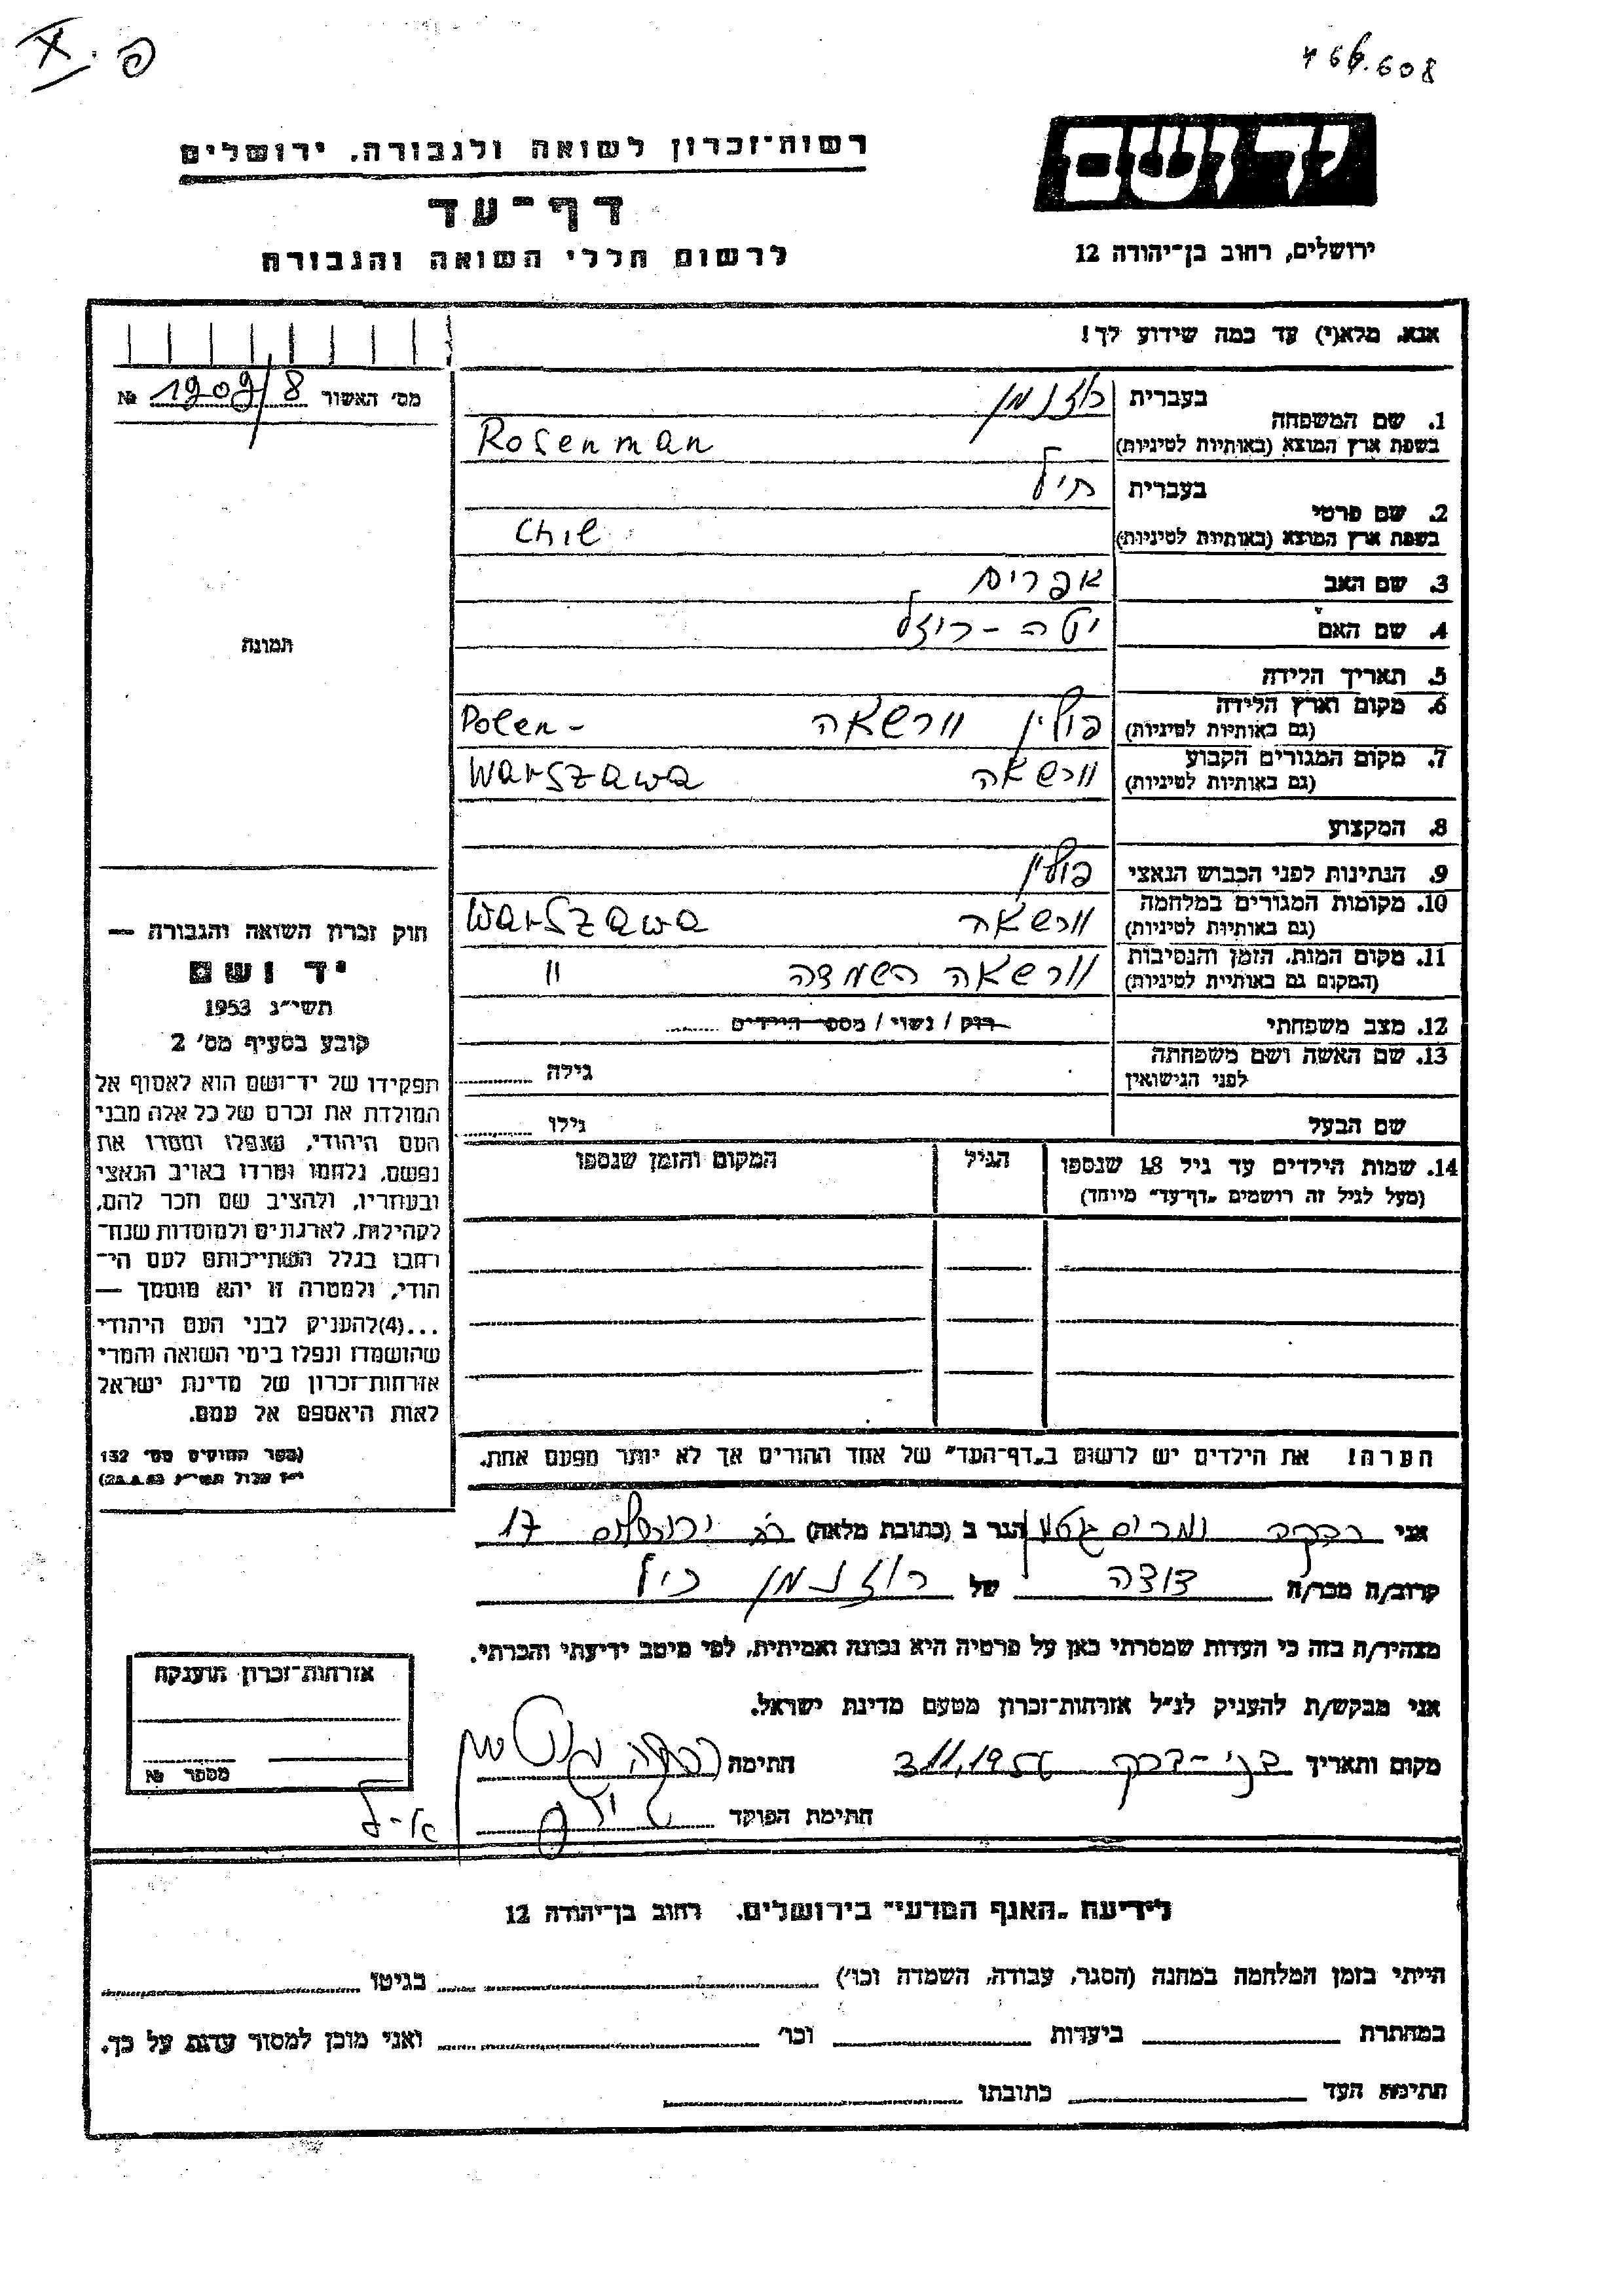 466.608
פ. X
יד ושם
ירושלים, רחוב בן־יהודה 12
רשות־זכרון לשואה ולגבורה. ירושלים
דף־עד
לרשום חללי השואה והגבורה
אנא. מלא(י) עד כמה שידוע לך!
מס׳ האשור 1909/8 №
1. שם המשפחה בעברית רוזנמן
בשפת ארץ המוצא (באותיות לטיניות) Rosenman
2. שם פרטי בעברית חיל
בשפת ארץ המוצא (באותיות לטיניות) Chil
3. שם האב אפרים
4. שם האם יטה - רוזל
5. תאריך הלידה
6. מקום וארץ הלידה (גם באותיות לטיניות) פולין וורשאה Polen -
7. מקום המגורים הקבוע (גם באותיות לטיניות) וורשאה Warszawa
8. המקצוע
9. הנתינות לפני הכבוש הנאצי פולין
10. מקומות המגורים במלחמה (גם באותיות לטיניות) וורשאה Warszawa
11. מקום המות. הזמן והנסיבות (המקום גם באותיית לטיניות) וורשאה השמדה "
12. מצב משפחתי רוק / נשוי / מספר הילדים
13. שם האשה ושם משפחתה לפני הנישואין גילה
שם הבעל גילו
14. שמות הילדים עד גיל 18 שנספו
(מעל לגיל זה רושמים „דף־עד״ מיוחד)
הגיל
המקום והזמן שנספו
תמונה
חוק זכרון השואה והגבורה —
יד ושם
תשי״ג 1953
קובע בסעיף מס׳ 2
תפקידו של יד־ושם הוא לאסוף אל
המולדת את זכרם של כל אלה מבני
העם היהודי, שנפלו ומסרו את
נפשם, נלחמו ומרדו באויב הנאצי
ובעוזריו, ולהציב שם וזכר להם,
לקהילות, לארגונים ולמוסדות שנח־
רחבו בגלל השתייכותם לעם הי־
הודי, ולמטרה זו יהא מוסמך —
...(4)להעניק לבני העם היהודי
שהושמדו ונפלו בימי השואה והמרי
אזרחות־זכרון של מדינת ישראל
לאות היאספם אל עמם.
(ספר החוקים מס׳ 132
הערה! את הילדים יש לרשום ב„דף־העד״ של אחד ההורים אך לא יותר מפעם אחת.
אני רבקה ומרים הגר ב (כתובת מלאה) רח׳ ירושלים 17
קרוב/ה מכר/ה דודה של רוזנמן חיל
מצהיר/ה בזה כי העדות שמסרתי כאן על פרטיה היא נכונה ואמיתית, לפי מיטב ידיעתי והכרתי.
אני מבקש/ת להעניק לנ״ל אזרחות־זכרון מטעם מדינת ישראל.
מקום ותאריך בני - ברק 3.11.1956 חתימה רבקה
חתימת הפוקד
אזרחות־זכרון הוענקה
מספר №
לידיעת „האגף המדעי״ בירושלים. רחוב בן־יהודה 12
הייתי בזמן המלחמה במחנה (הסגר, עבודה, השמדה וכו׳) בגיטו
במחתרת ביערות וכו׳ ואני מוכן למסור עדות על כך.
חתימת העד כתובתו